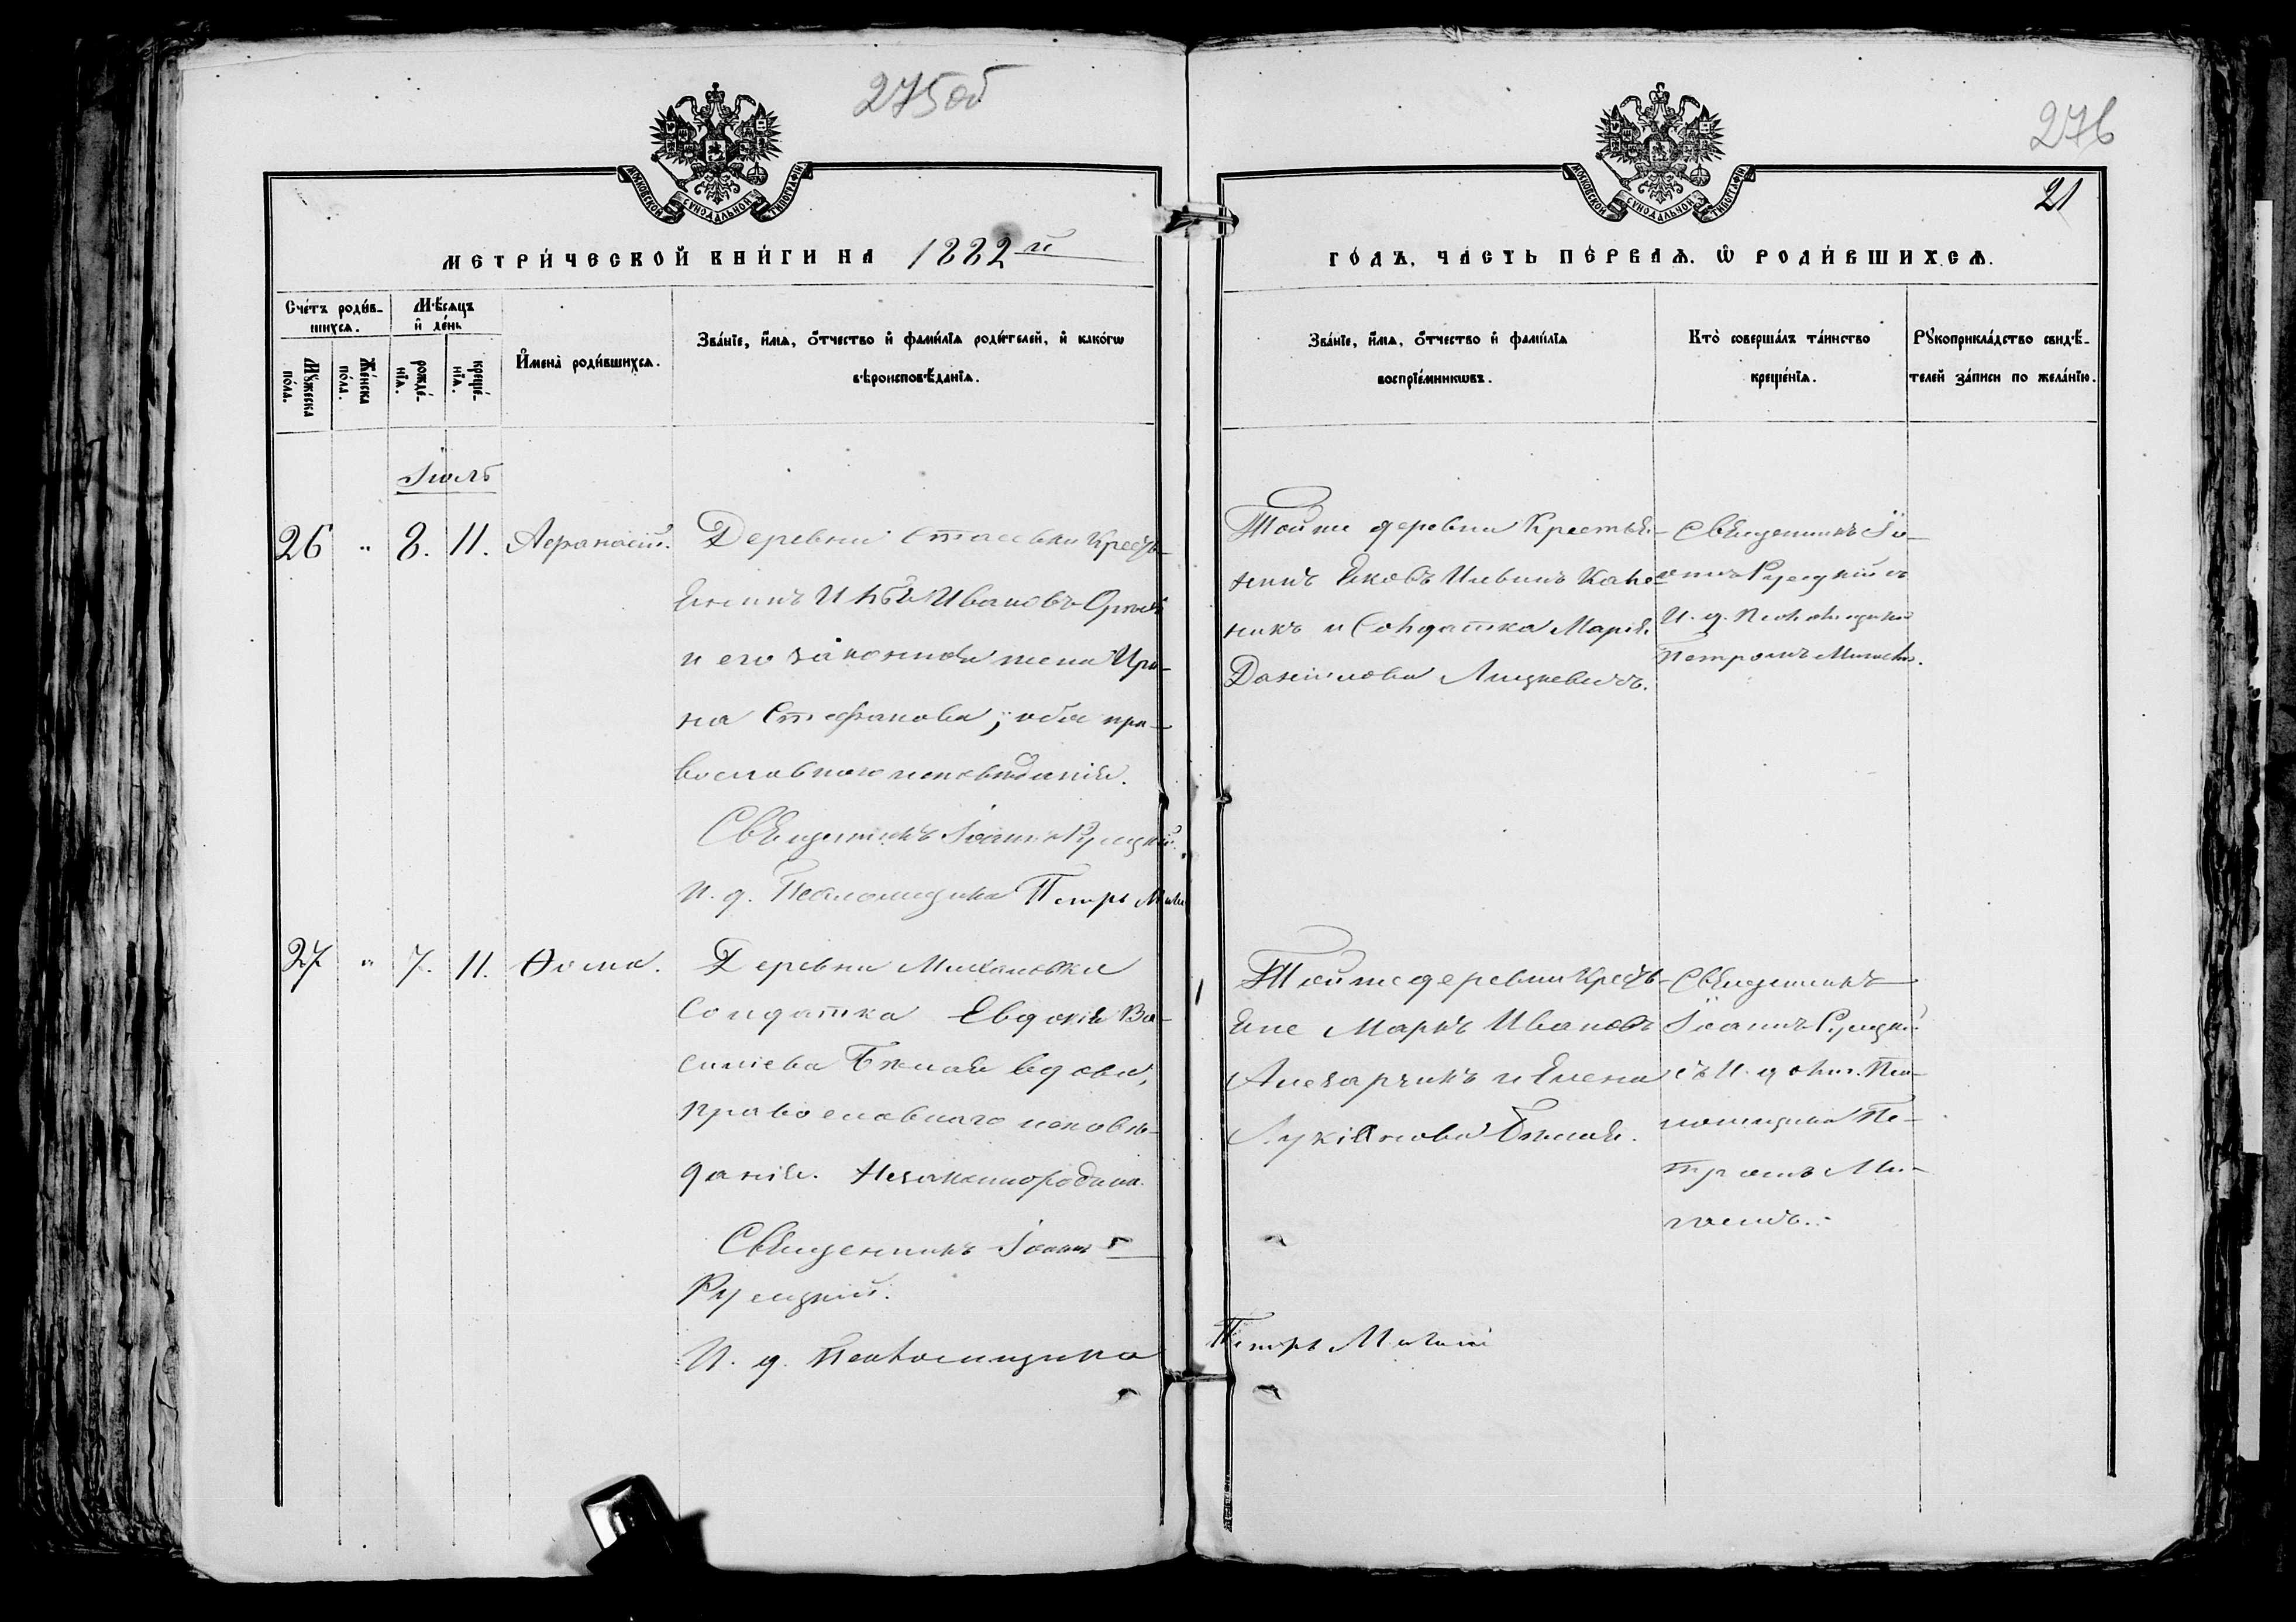 275об
276
21
МОСКОВСКОЙ СѴНОДАЛЬНОЙ ТИПОГРАФІИ
МОСКОВСКОЙ СѴНОДАЛЬНОЙ ТИПОГРАФІИ
МЕТРИ́ЧЕСКОЙ КНИ́ГИ НА 1882й
ГО́ДЪ, ЧА́СТЬ ПЕ́РВАѦ, Ѡ РОДИ́ВШИХСѦ.
Сче́тъ роди́в-
шихсѧ.
Мꙋ́жеска
по́ла.
Же́нска
по́ла.
Мѣ́сѧцъ
и҆ де́нь
рожде́-
нїѧ.
креще́-
нїѧ.
И҆мена̀ роди́вшихсѧ.
Зва́нїе, и҆́мѧ, ѻ҆́тчество и҆ фами́лїѧ роди́телей, и҆ како́гѡ
вѣроисповѣ́данїѧ.
Зва́нїе, и҆́мѧ, ѻ҆́тчество и҆ фами́лїѧ
воспрїе́мникѡвъ.
Кто̀ соверша́лъ та́инство
креще́нїѧ.
Рꙋкоприкла́дство свидѣ́-
телей за́писи по жела́нїю.
Іюль
26 " 8. 11. Аѳанасій.
Деревни Крестъ-
янинъ Ивановъ
и его законная жена Ири-
на Стефанова; оба пра-
вославнаго исповѣданія.
Священникъ Іоаннъ Русецкій.
И. д. Псаломщика Петръ
Той же деревни Крестья-
нинъ Яковъ
и Солдатка Марія
Даніилова Лицкевичъ.
Священникъ Іо-
аннъ Русецкій съ
И. д. Псаломщика
Петромъ
27 " 7. 11. Ѳома.
Деревни Михаловки
Солдатка Евдокія Ва-
силіева вдова,
православнаго исповѣ-
данія. Незаконнорожден.
Священникъ Іоаннъ
Русецкій.
И. д. Псаломщика Петръ
Той же деревни Кресть-
яне Маркъ Ивановъ
и Елена
Лукіянова
Священникъ
Іоаннъ Русецкій
съ И. д. Пса-
ломщика Пе-
тромъ Ми-